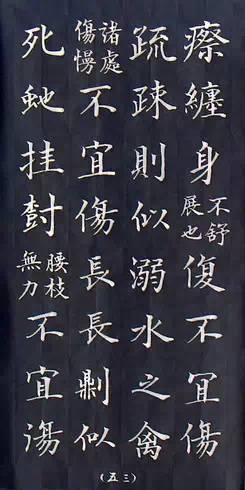 瘵纏身不舒展也復不宜傷
疏疎則似溺水之禽
諸處傷慢不宜傷長長則似
死虵挂樹腰枝無力不宜傷
（五三）